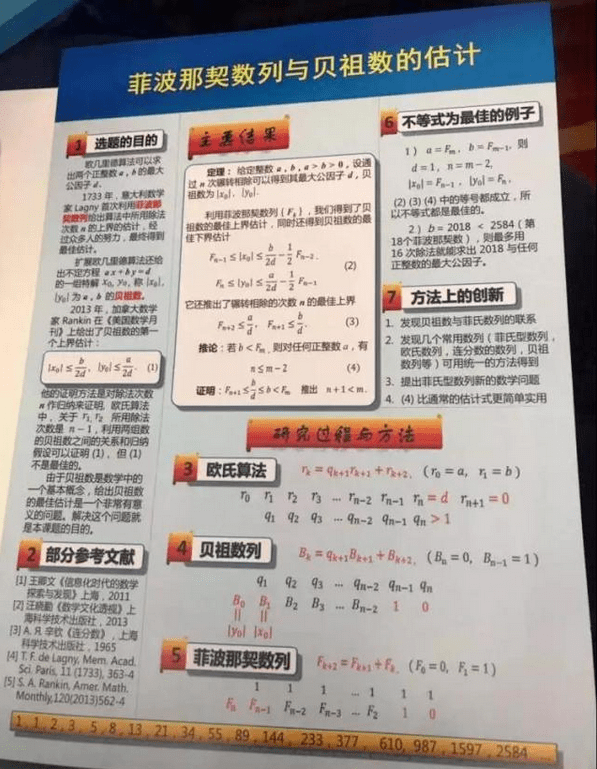 菲波那契数列与贝祖数的估计
1 选题的目的
欧几里德算法可以求
出两个正整数 a, b 的最大
公因子 d.
1733 年，意大利数学
家 Lagny 首次利用菲波那
契数列给出算法中所用除法
次数 n 的上界的估计，经
过众多人的努力，最终得到
最佳估计。
扩展欧几里德算法还给
出不定方程 ax + by = d
的一组特解 x₀, y₀, 称 |x₀|,
|y₀| 为 a, b 的贝祖数。
2013 年，加拿大数学
家 Rankin 在《美国数学月
刊》上给出了贝祖数的第一
个上界估计：
|x₀| ≤ b/2d, |y₀| ≤ a/2d. (1)
他的证明方法是对除法次数
n 作归纳来证明，欧氏算法
中，关于 r₁, r₂ 所用除法
次数是 n − 1，利用两组数
的贝祖数之间的关系和归纳
假设可以证明 (1)、但 (1)
不是最佳的。
由于贝祖数是数学中的
一个基本概念，给出贝祖数
的最佳估计是一个非常有意
义的问题。解决这个问题就
是本课题的目的。
2 部分参考文献
[1] 王卿文《信息化时代的数学
探索与发现》上海，2011
[2] 汪晓勤《数学文化透视》上
海科学技术出版社，2013
[3] А. Я. 辛钦《连分数》，上海
科学技术出版社，1965
[4] T. F. de Lagny, Mem. Acad.
Sci. Paris, 11 (1733), 363-4
[5] S. A. Rankin, Amer. Math.
Monthly,120(2013)562-4
主要结果
定理：给定整数 a, b, a > b > 0，设通
过 n 次辗转相除可以得到其最大公因子 d，贝
祖数为 |x₀|, |y₀|.
利用菲波那契数列 {Fₖ}，我们得到了贝
祖数的最佳上界估计，同时还得到贝祖数的最
佳下界估计
Fₙ₋₁ ≤ |x₀| ≤ b/2d − 1/2 Fₙ₋₂.
(2)
Fₙ ≤ |y₀| ≤ a/2d − 1/2 Fₙ₋₁
它还推出了辗转相除的次数 n 的最佳上界
Fₙ₊₂ ≤ a/d, Fₙ₊₁ ≤ b/d. (3)
推论：若 b < Fₘ, 则对任何正整数 a，有
n ≤ m − 2 (4)
证明：Fₙ₊₁ ≤ b/d ≤ b < Fₘ 推出 n + 1 < m.
6 不等式为最佳的例子
1） a = Fₘ, b = Fₘ₋₁, 则
d = 1, n = m − 2,
|x₀| = Fₙ₋₁, |y₀| = Fₙ,
(2) (3) (4) 中的等号都成立，所
以不等式都是最佳的。
2） b = 2018 < 2584（第
18个菲波那契数），则最多用
16 次除法就能求出 2018 与任何
正整数的最大公因子。
7 方法上的创新
1. 发现贝祖数与菲氏数列的联系
2. 发现几个常用数列（菲氏型数列，
欧氏数列，连分数的数列，贝祖
数列等）可用统一的方法得到
3. 提出菲氏型数列新的数学问题
4. (4) 比通常的估计式更简单实用
研究过程与方法
3 欧氏算法 rₖ = qₖ₊₁rₖ₊₁ + rₖ₊₂, (r₀ = a, r₁ = b)
r₀ r₁ r₂ r₃ … rₙ₋₂ rₙ₋₁ rₙ = d rₙ₊₁ = 0
q₁ q₂ q₃ … qₙ₋₂ qₙ₋₁ qₙ > 1
4 贝祖数列 Bₖ = qₖ₊₁Bₖ₊₁ + Bₖ₊₂, (Bₙ = 0, Bₙ₋₁ = 1)
q₁ q₂ q₃ … qₙ₋₂ qₙ₋₁ qₙ
B₀ B₁ B₂ B₃ … Bₙ₋₂ 1 0
|| ||
|y₀| |x₀|
5 菲波那契数列 Fₖ₊₂ = Fₖ₊₁ + Fₖ, (F₀ = 0, F₁ = 1)
1 1 1 … 1 1 1
Fₙ Fₙ₋₁ Fₙ₋₂ Fₙ₋₃ … F₂ 1 0
1, 1, 2, 3, 5, 8, 13, 21, 34, 55, 89, 144, 233, 377, 610, 987, 1597, 2584 …